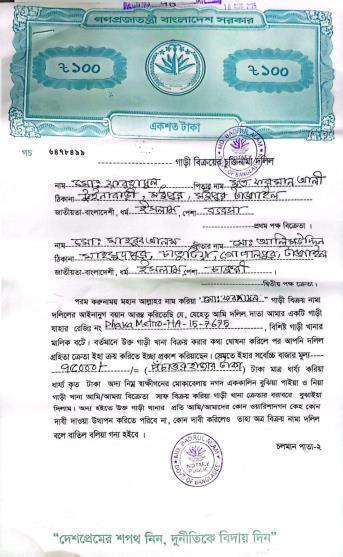 গণপ্রজাতন্ত্রী বাংলাদেশ সরকার
৳১০০ ৳১০০
একশত টাকা
গড ৬৪৭৮৪৯৯
MD BADRUL ALAM
গাড়ী বিক্রয়ের চুক্তিনামা দলিল
নাম- মোঃ পিতার নাম মৃত আলী
ঠিকানা
জাতীয়তা-বাংলাদেশী, ধর্ম ইসলাম, পেশা ব্যবসা
প্রথম পক্ষ বিক্রেতা ।
নাম- মোঃ পিতার নাম মোঃ
ঠিকানা
জাতীয়তা-বাংলাদেশী, ধর্ম ইসলাম, পেশা- চাকুরী
দ্বিতীয় পক্ষ ক্রেতা ।
পরম করুনাময় মহান আল্লাহর নাম করিয়া গাড়ী বিক্রয় নামা
দলিলের আইনানুগ বয়ান আরম্ভ করিতেছি যে, যেহেতু আমি দলিল দাতা আমার একটি গাড়ী
যাহার রেজিঃ নং Dhaka Metro-HA-15-7675, বিশিষ্ট গাড়ী খানার
মালিক বটে। বর্তমানে উক্ত গাড়ী খানা বিক্রয় করার কথা ঘোষনা করিলে পর আপনি দলিল
গ্রহিতা ক্রেতা ইহা ক্রয় করিতে ইচ্ছা প্রকাশ করিয়াছেন। সেমতে ইহার সর্বোচ্চ বাজার মূল্য
হাজার টাকা) টাকা মাত্র ধার্য্য করিয়া
ধার্য্য কৃত টাকা অদ্য নিম্ন স্বাক্ষীগনের মোকাবেলায় নগদ এককালিন বুঝিয়া পাইয়া ও নিয়া
গাড়ী খানা আমি/আমরা বিক্রেতা সাফ বিক্রয় করিয়া গাড়ী খানা ক্রেতার বরাবরে বুঝাইয়া
দিলাম। অদ্য হইতে উক্ত গাড়ী খানার প্রতি আমি/আমাদের কোন ওয়ারিশানগন কেহ কোন
দাবী দাওয়া উত্থাপন করিতে পরিবে না, কোন দাবী করিলেও তাহা অত্র বিক্রয় নামা দলিল
বলে বাতিল বলিয়া গন্য হইবে ।
চলমান পাতা-২
MD BADRUL ALAM
NOTARY PUBLIC
GOVT OF BANGLADESH
"দেশপ্রেমের শপথ নিন, দুর্নীতিকে বিদায় দিন"